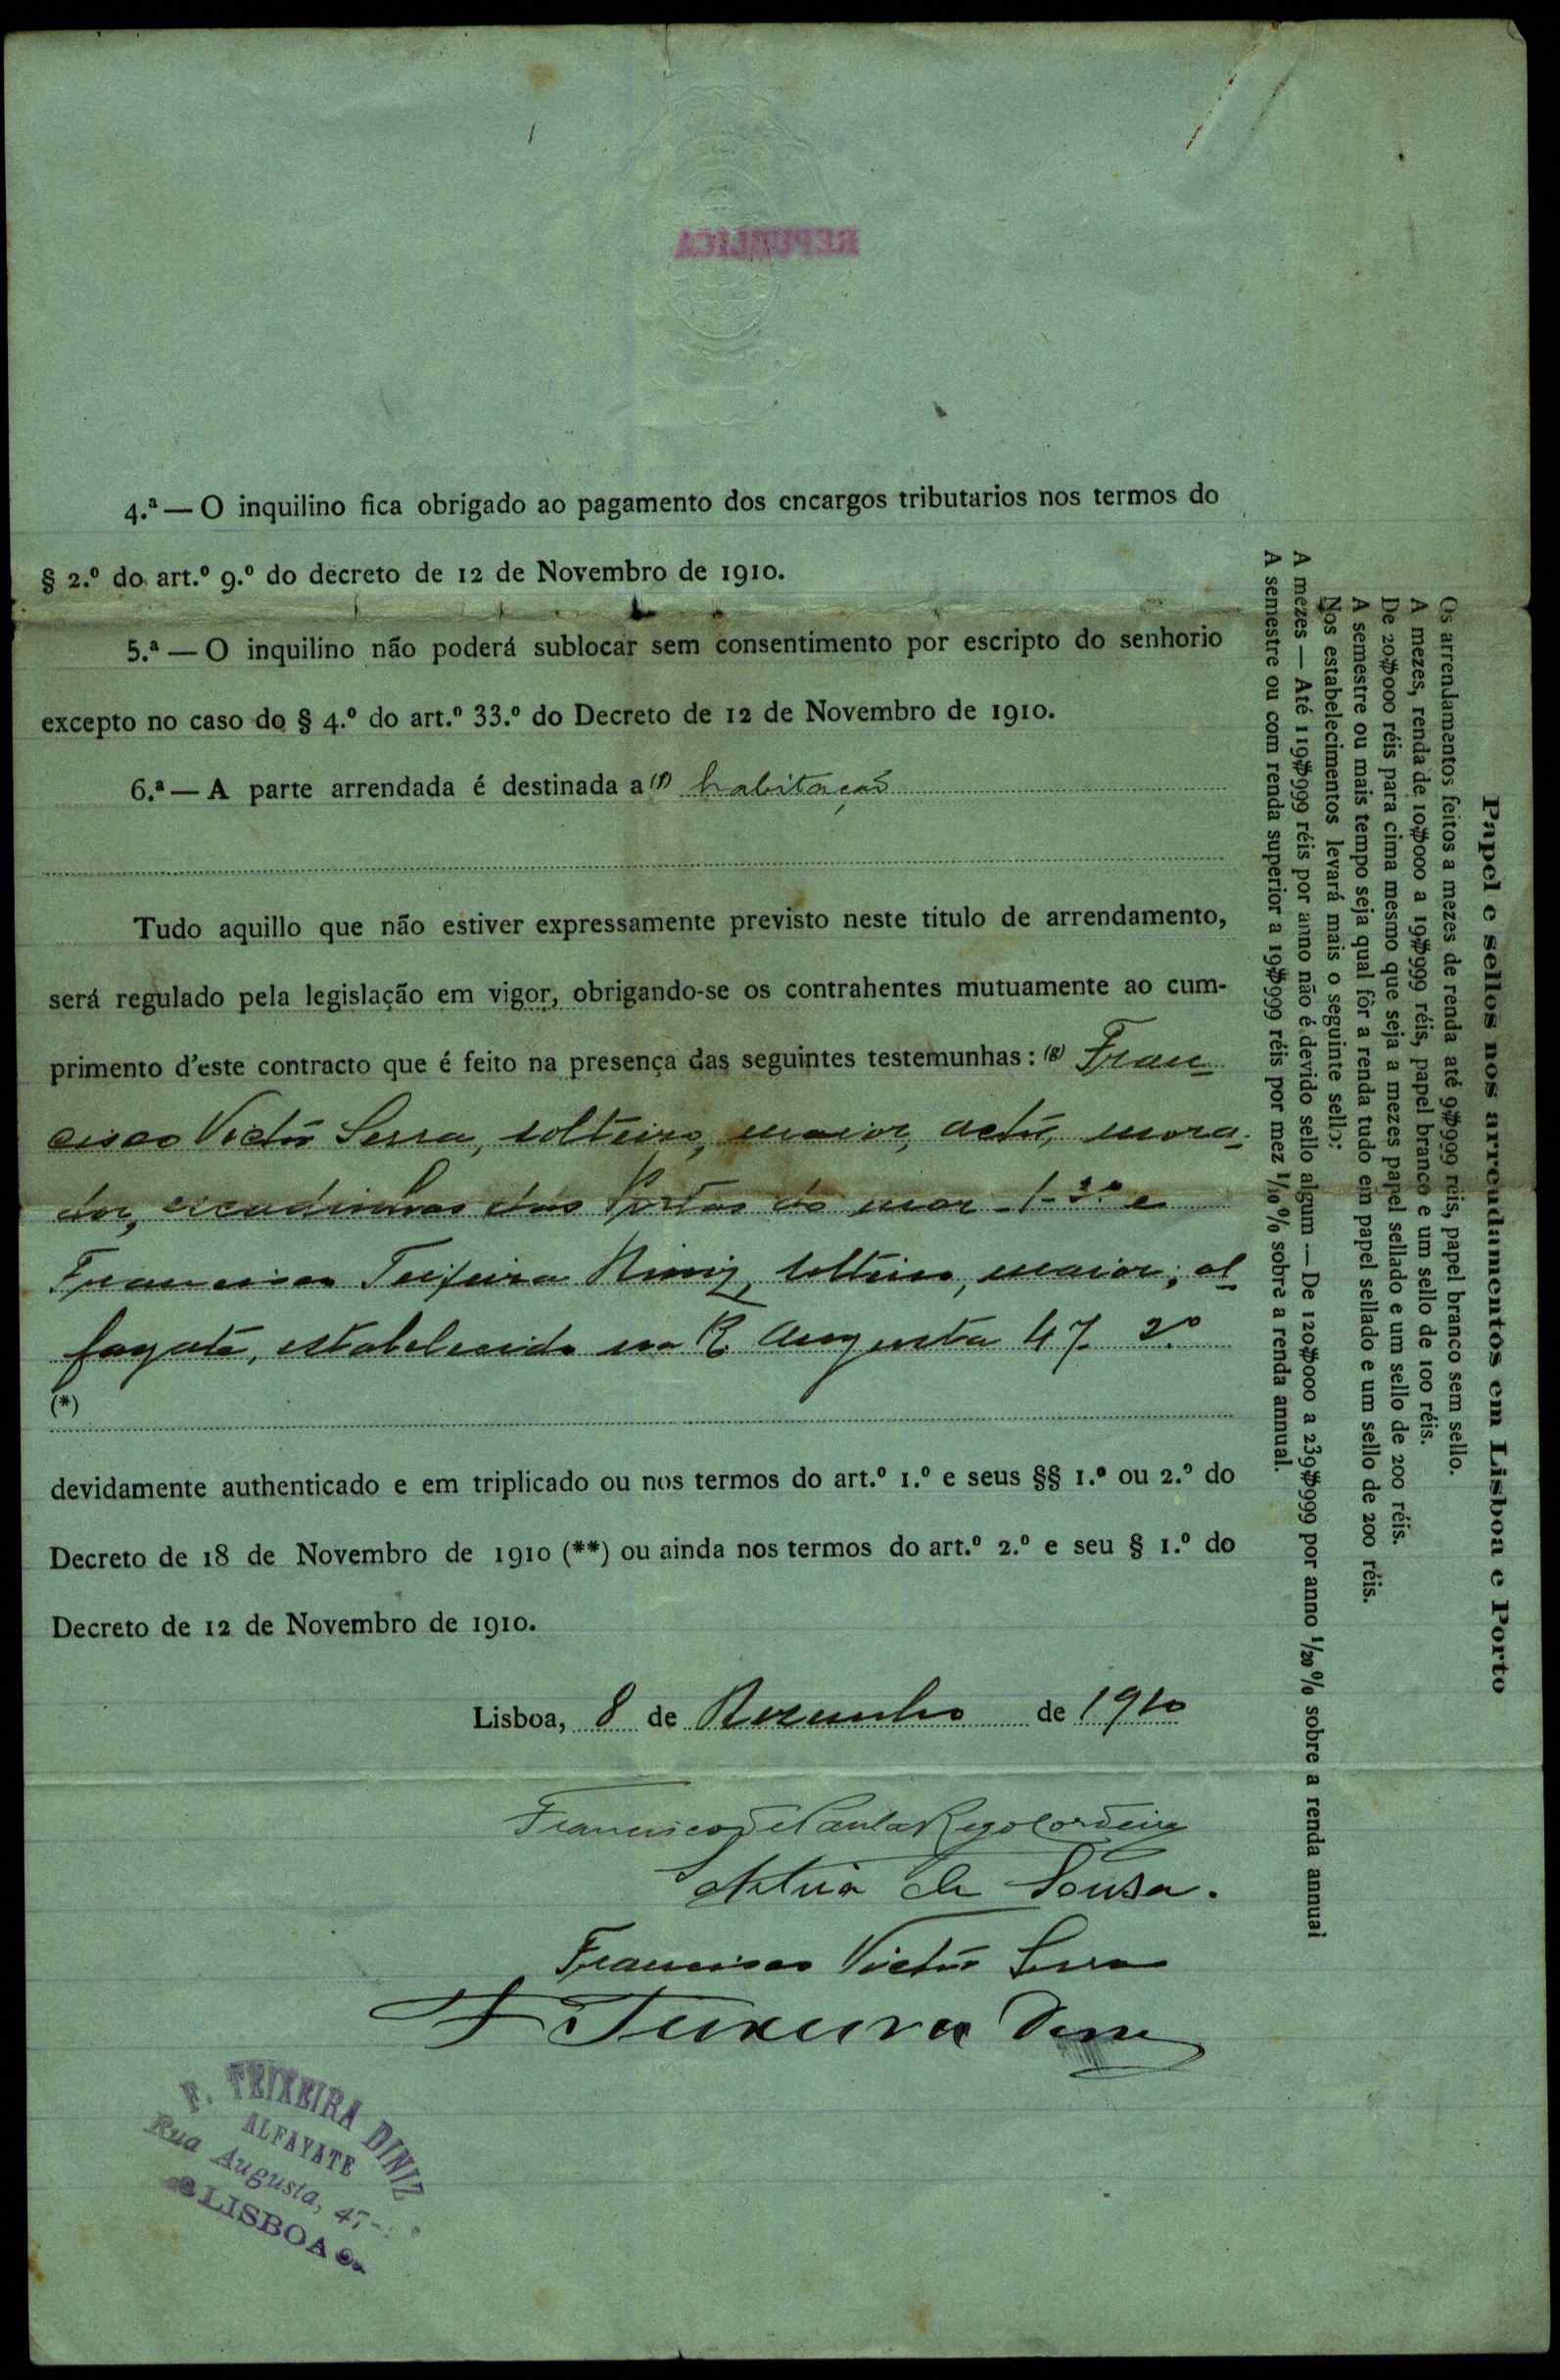 REPUBLICA
4.ª — O inquilino fica obrigado ao pagamento dos encargos tributarios nos termos do
§ 2.º do art.º 9.º do decreto de 12 de Novembro de 1910.
5.ª — O inquilino não poderá sublocar sem consentimento por escripto do senhorio
excepto no caso do § 4.º do art.º 33.º do Decreto de 12 de Novembro de 1910.
6.ª — A parte arrendada é destinada a (f) habitação
Tudo aquillo que não estiver expressamente previsto neste titulo de arrendamento,
será regulado pela legislação em vigor, obrigando-se os contrahentes mutuamente ao cum-
primento d'este contracto que é feito na presença das seguintes testemunhas: (g) Fran
cisco Victor Serra, solteiro, maior, actor, mora-
dor, escadinhas das Portas do mar - 1 - 3.º e
Francisco Teixeira Diniz, solteiro, maior, al
fayate, estabelecido na R. Augusta 47 2º
(*)
devidamente authenticado e em triplicado ou nos termos do art.º 1.º e seus §§ 1.º ou 2.º do
Decreto de 18 de Novembro de 1910 (**) ou ainda nos termos do art.º 2.º e seu § 1.º do
Decreto de 12 de Novembro de 1910.
Lisboa, 8 de Dezembro de 1910
Francisco de Paula Rego Cordeiro
de Sousa.
Francisco Victor Serra
F Teixeira Diniz
F. TEIXEIRA DINIZ
ALFAYATE
Rua Augusta, 47-
LISBOA
Papel e sellos nos arrendamentos em Lisboa e Porto
Os arrendamentos feitos a mezes de renda até 9$999 reis, papel branco sem sello.
A mezes, renda de 10$000 a 19$999 réis, papel branco e um sello de 100 réis.
De 20$000 réis para cima mesmo que seja a mezes papel sellado e um sello de 200 réis.
A semestre ou mais tempo seja qual fôr a renda tudo em papel sellado e um sello de 200 réis.
Nos estabelecimentos levará mais o seguinte sello:
A mezes — Até 119$999 réis por anno não é devido sello algum — De 120$000 a 239$999 por anno 1/20 % sobre a renda annual
A semestre ou com renda superior a 19$999 réis por mez 1/10 % sobre a renda annual.